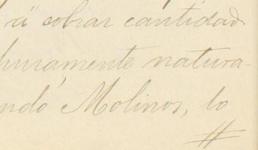 a cobrar cantidad
puramente natura-
ndo Molinos, lo